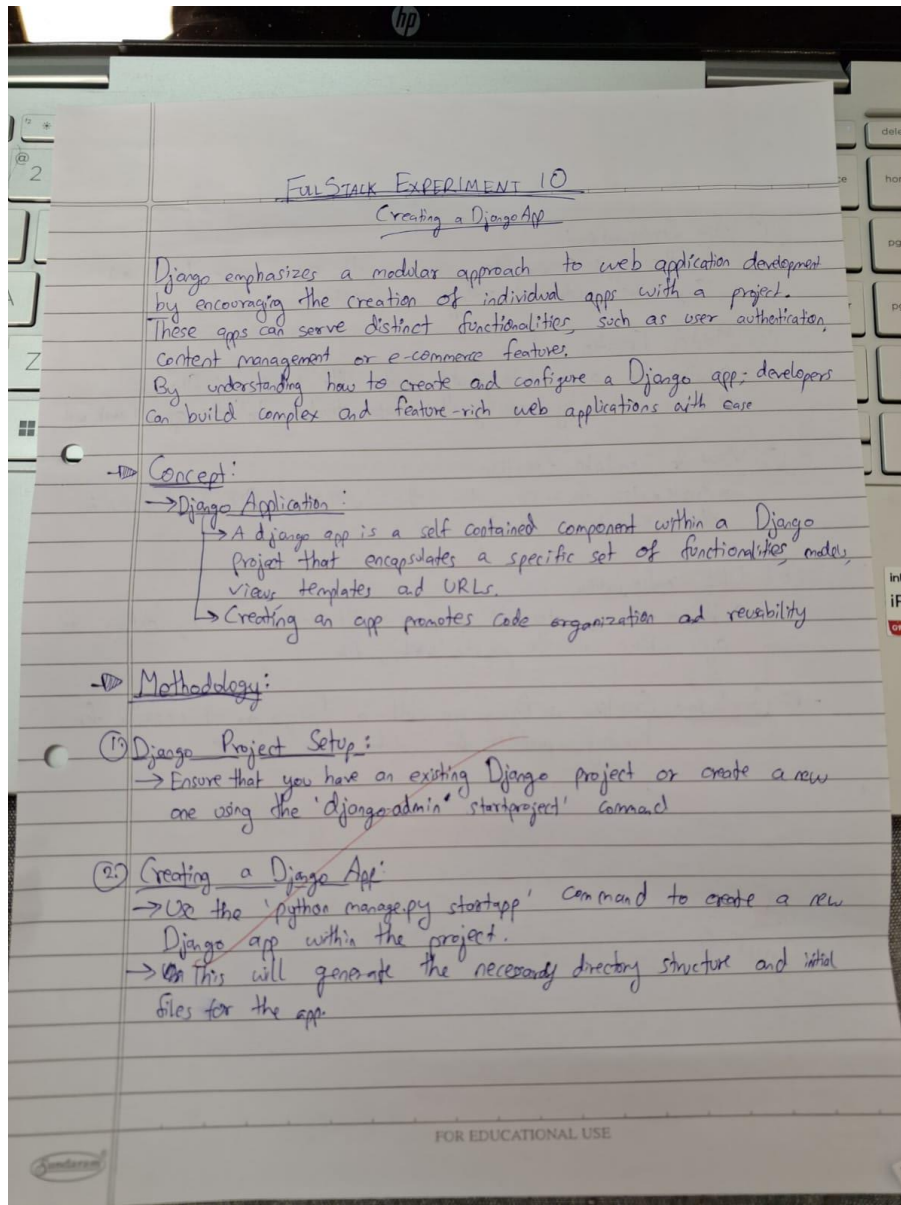 hp
@
2
Z
dele
hor
FULSTALK EXPERIMENT 10
Creating a Django App
Django emphasizes a modular approach to web application development
by encouraging the creation of individual apps with a project.
These apps can serve distinct functionalities, such as user authentication,
content management or e-commerce features.
By understanding how to create and configure a Django app; developers
can build complex and feature-rich web applications with ease
Concept:
→ Django Application:
→ A django app is a self contained component within a Django
Project that encapsulates a specific set of functionalities, models,
views templates ad URLs.
→ Creating an app promotes code organization ad reusability
Methodology:
1) Django Project Setup:
→ Ensure that you have an existing Django project or create a new
one using the 'django-admin' startproject' command
2) Creating a Django App:
→ Use the 'python manage.py startapp' command to create a new
Django app within the project.
→ This will generate the necessary directory structure and initial
files for the app.
FOR EDUCATIONAL USE
Sundaram